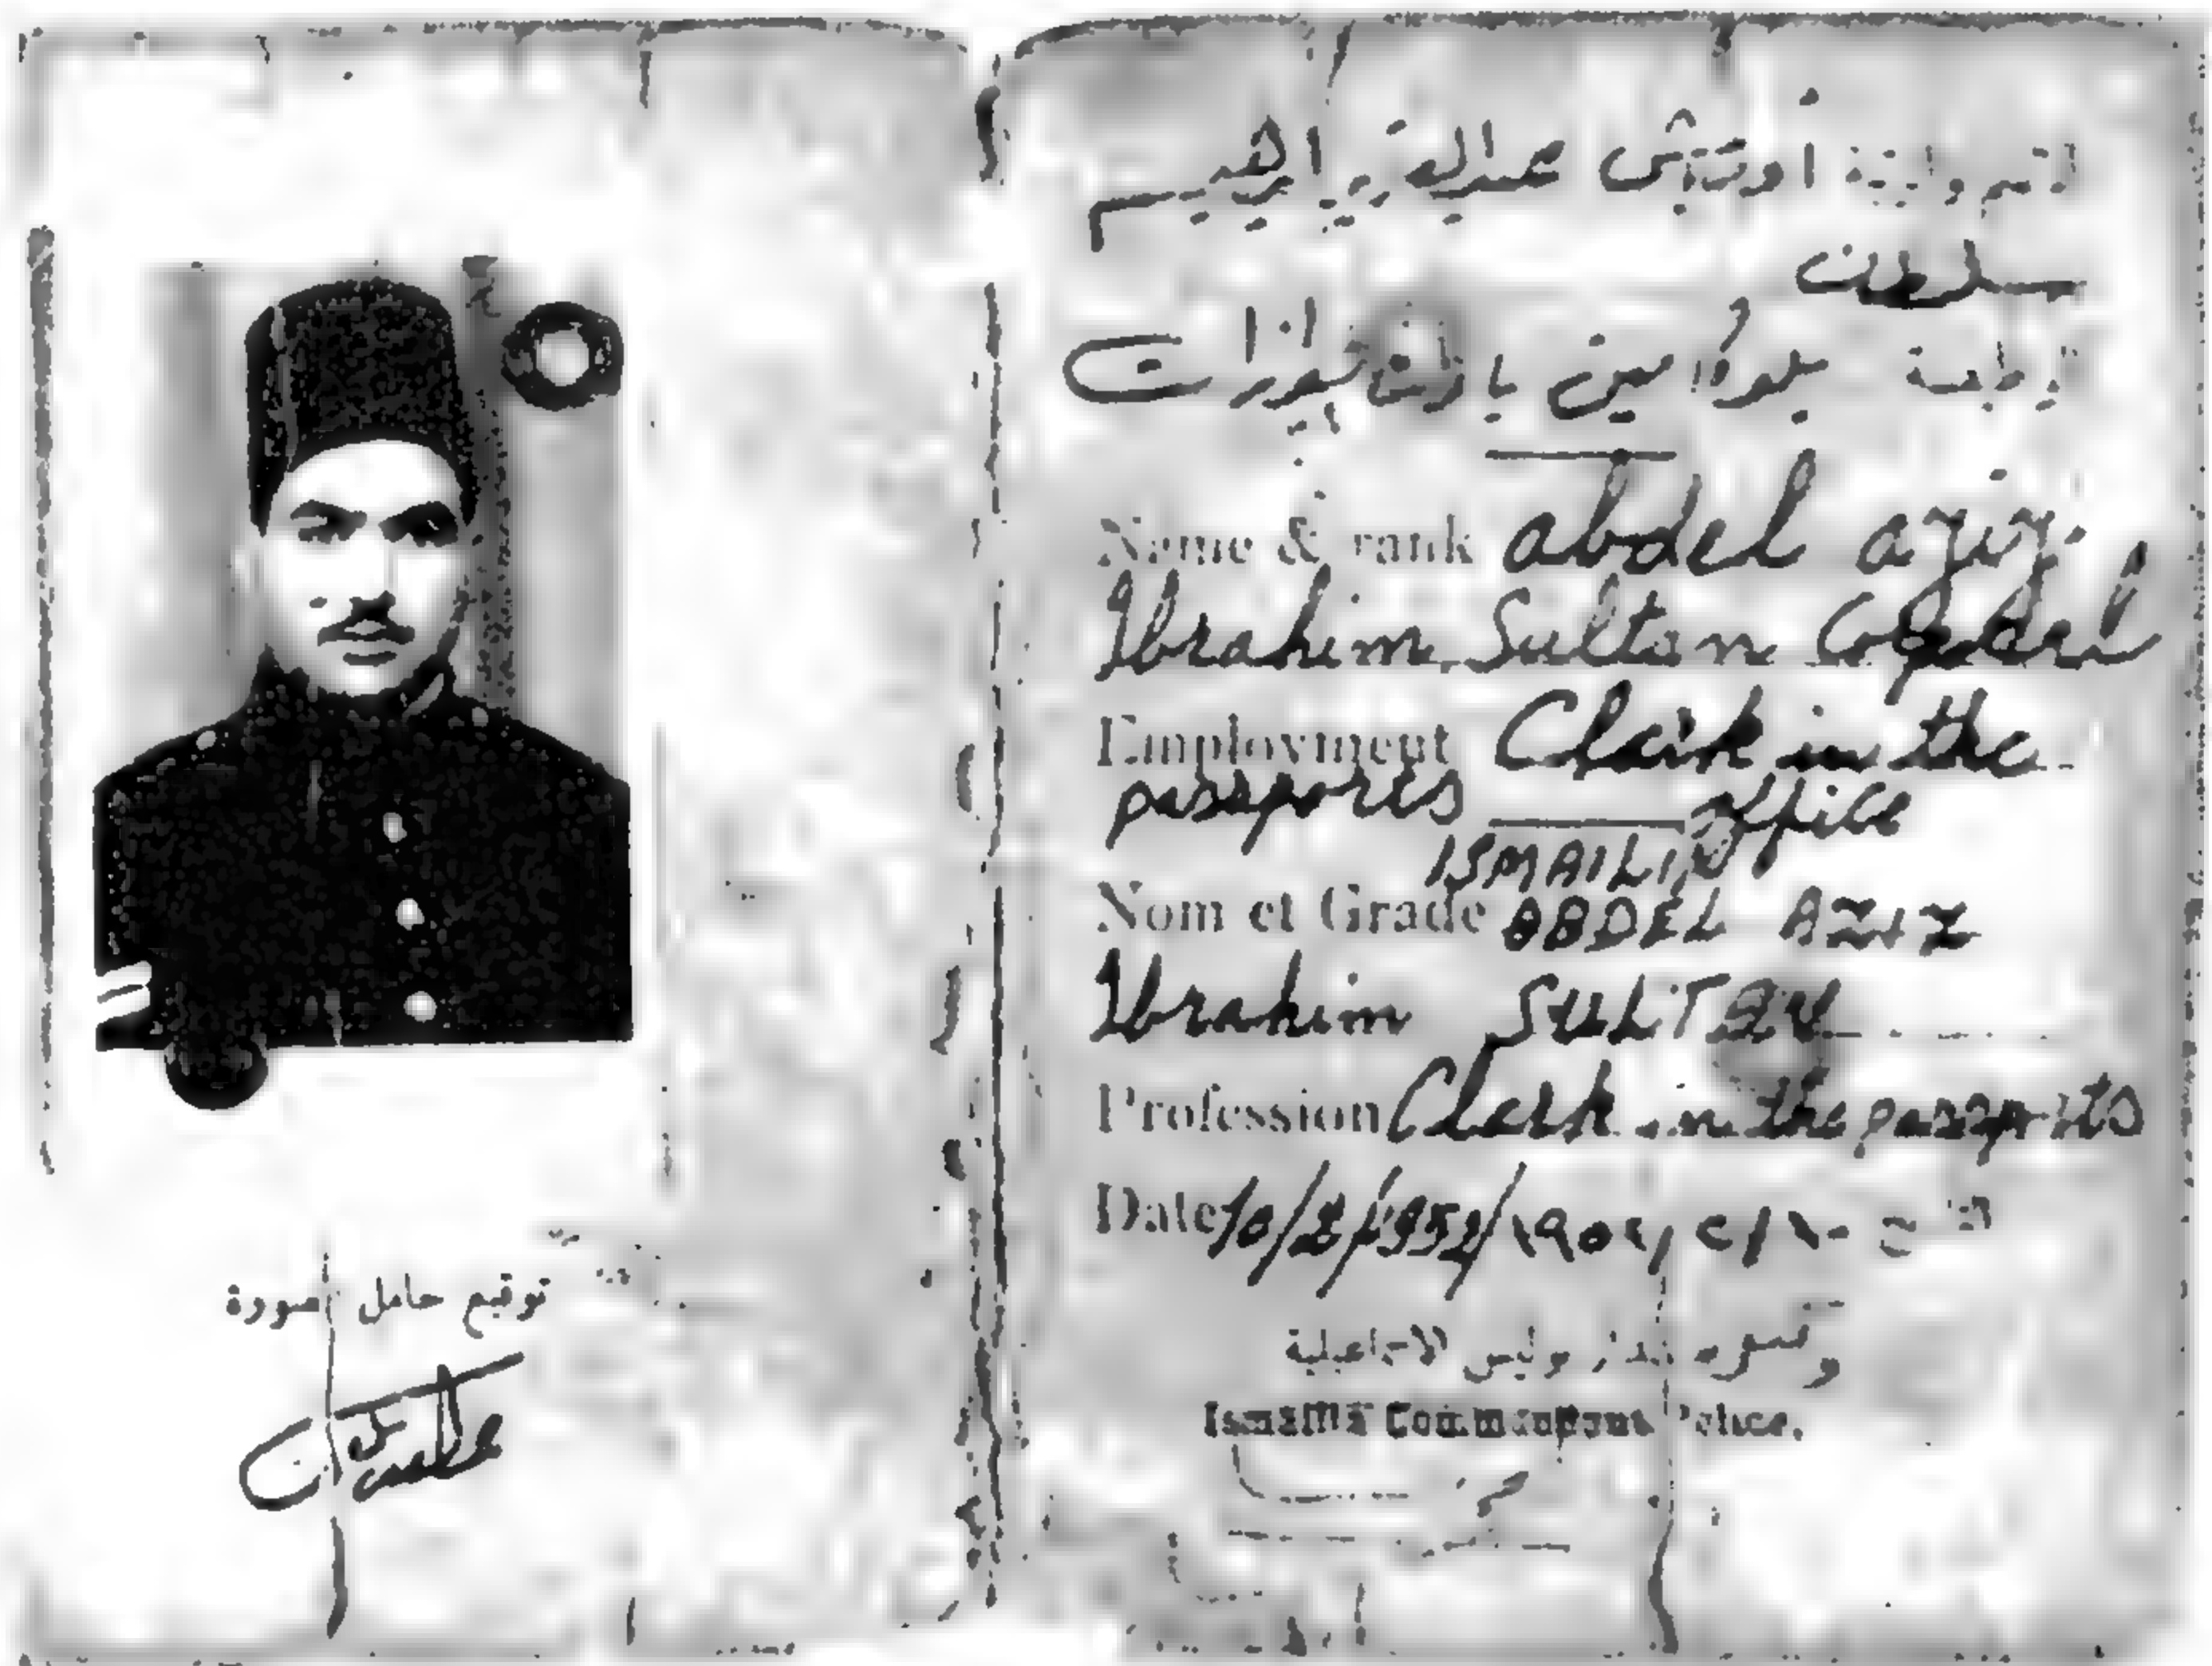 توقيع حامل الصورة
الاسم والرتبة أونباشى عبدالعزيز ابراهيم
سلطان
الوظيفة بلوك أمين بادارة الجوازات
Name & rank abdel aziz
Ibrahim Sultan
Employment Clark in the
passports office
ISMAILIA
Nom et Grade ABDEL AZIZ
Ibrahim SULTAN
Profession Clerk in the passports
Date 10/2/1952/ ١٩٥٢/٢/١٠
بوليس الاسماعيلية
Ismailia Commandant Police.